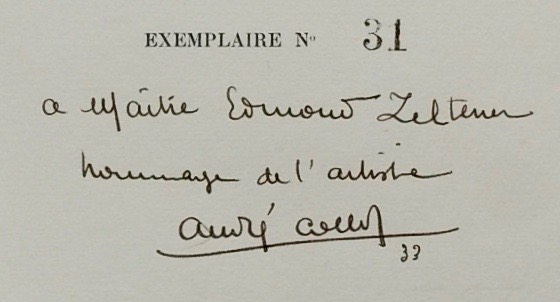 EXEMPLAIRE No 31
a Maître Edmond Zeltener
hommage de l'artiste
André Collot
33